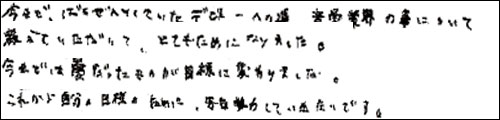 今まで、ばくぜんとしていたデビューへの道 音楽業界の事について
教えていただいて、とてもためになりました。
今までは夢だったものが目標に変わりました。
これから自分の目標のために、努力していきたいです。